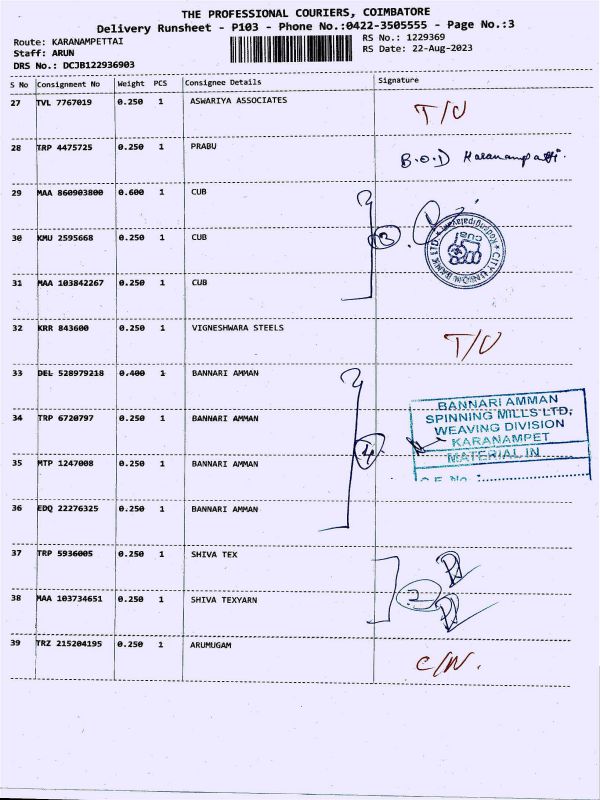 THE PROFESSIONAL COURIERS, COIMBATORE
Delivery Runsheet - P103 - Phone No.:0422-3505555 - Page No.:3
Route: KARANAMPETTAI
RS No.: 1229369
Staff: ARUN
RS Date: 22-Aug-2023
DRS No.: DCJB122936903
S No Consignment No Weight PCS Consignee Details Signature
27 TVL 7767019 0.250 1 ASWARIYA ASSOCIATES T/U
28 TRP 4475725 0.250 1 PRABU B.O.D Karanampatti.
29 MAA 860903800 0.600 1 CUB
30 KMU 2595668 0.250 1 CUB 3
CITY UNION BANK LTD
CUB
31 MAA 103842267 0.250 1 CUB
32 KRR 843600 0.250 1 VIGNESHWARA STEELS T/U
33 DEL 528979218 0.400 1 BANNARI AMMAN
34 TRP 6720797 0.250 1 BANNARI AMMAN
35 MTP 1247008 0.250 1 BANNARI AMMAN 4
BANNARI AMMAN
SPINNING MILLS LTD,
WEAVING DIVISION
KARANAMPET
MATERIAL IN
36 EDQ 22276325 0.250 1 BANNARI AMMAN
37 TRP 5936005 0.250 1 SHIVA TEX
38 MAA 103734651 0.250 1 SHIVA TEXYARN 2
39 TRZ 215204195 0.250 1 ARUMUGAM C/N.